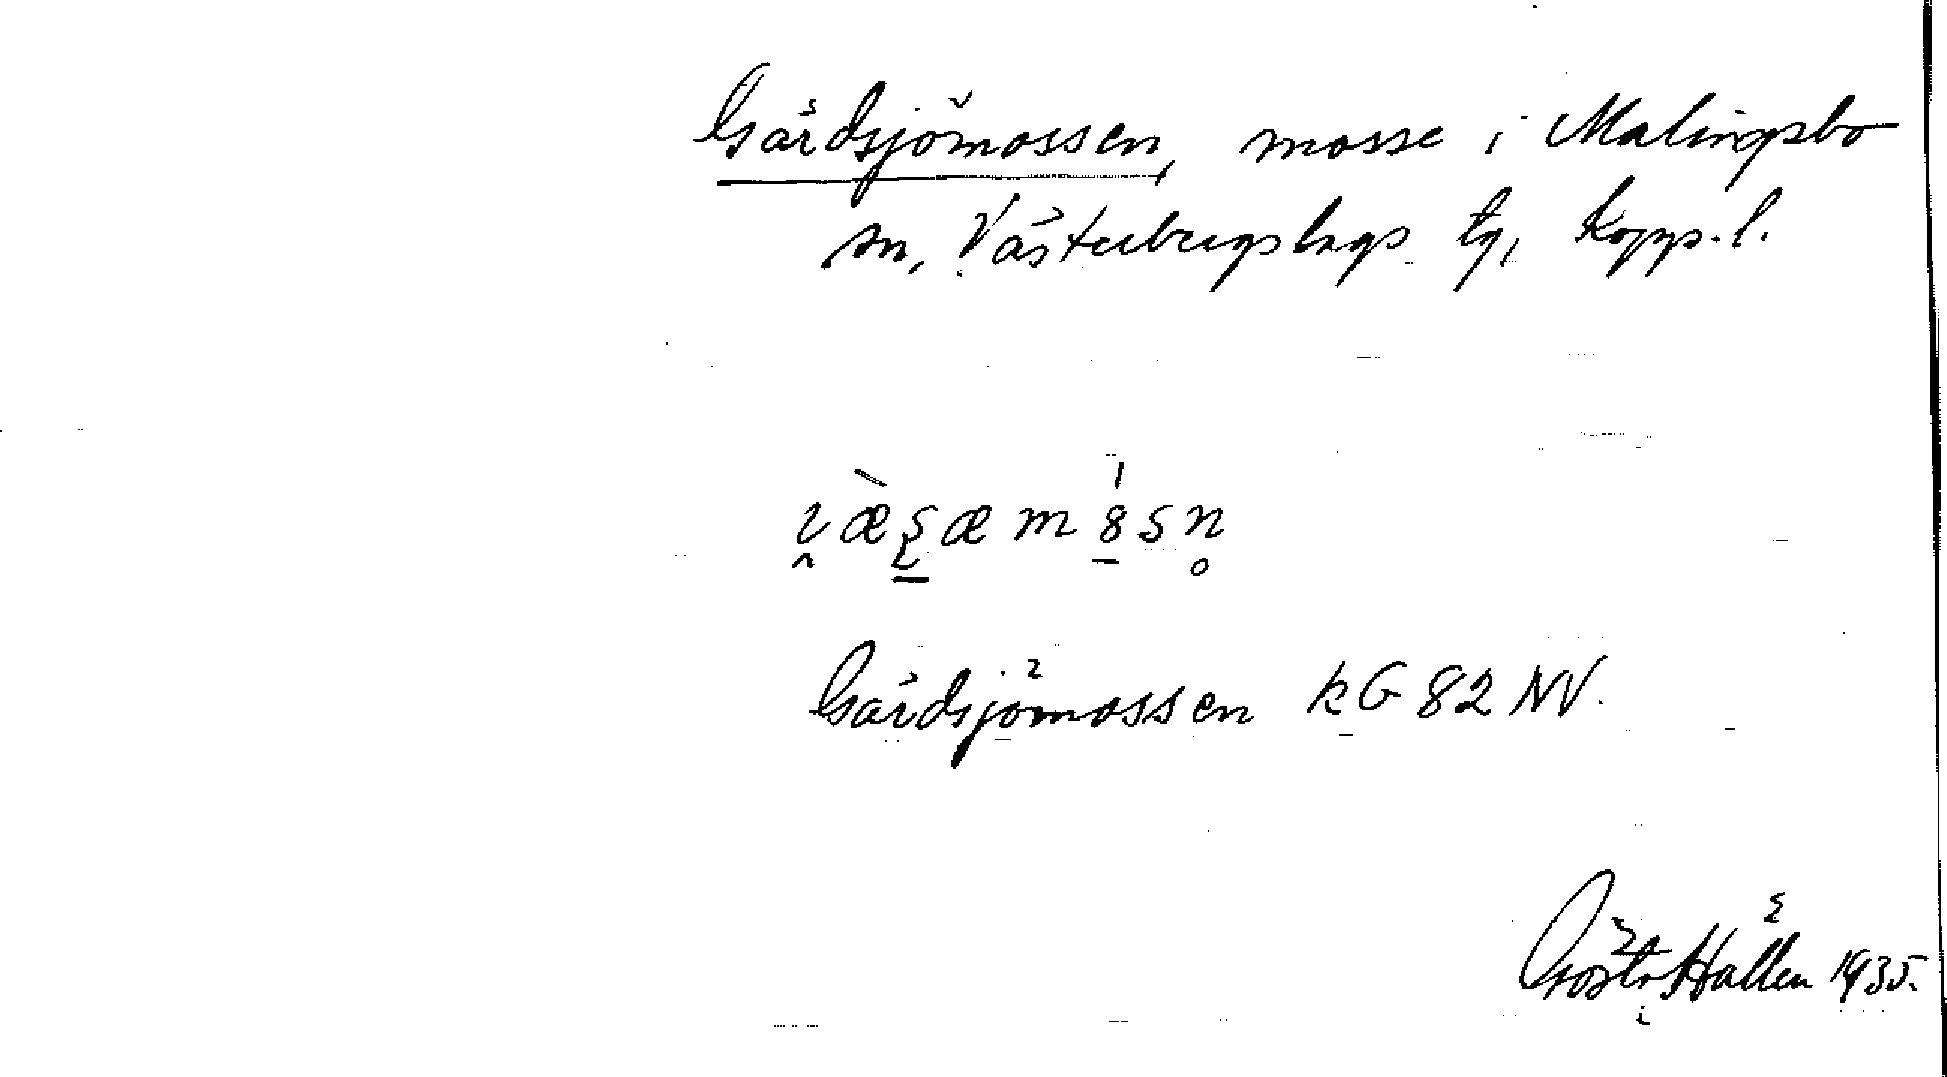 Gärdsjömossen, mosse i Malingsbo
sn, Västerbergslags tg, Kopp. l.
Gärdsjömossen kG 82 NV.
Gösta Hallén 1935.